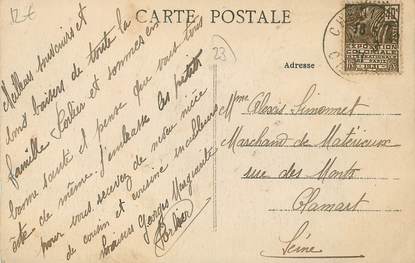 12 €
CARTE POSTALE
23
Meilleurs souvenirs et
doux baisers de toute la
famille Forlier et sommes en
bonne santé et pense que vous tous
être de même. J'embrasse les petits
pour vous recevez de notre nièce
de cousin et cousine meilleurs
baisers Georges Marguerite
Adresse
EXPOSITION
COLONIALE
INTERNATIONALE
PARIS 1931
Mme Alexis Simonnet
Marchand de Matériaux
rue des Monts
Clamart
Seine